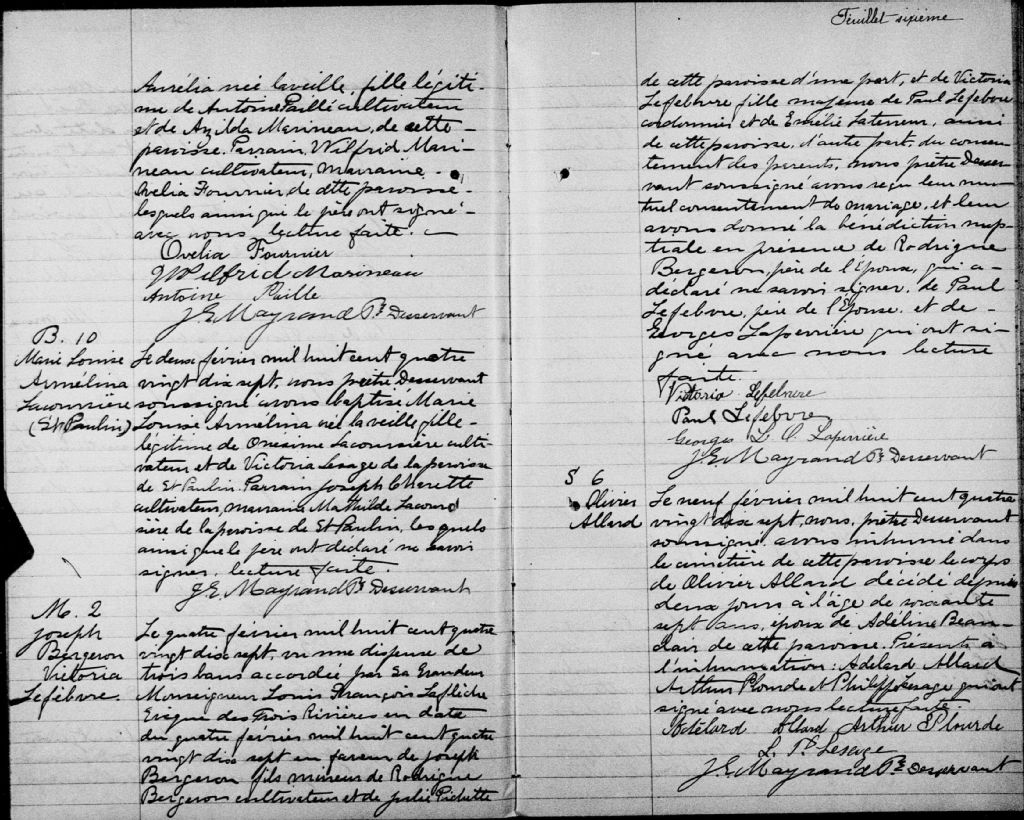 Aurélia née la veille, fille légiti-
me de Antoine Paillé cultivateur
et de Azilda Marineau, de cette
paroisse. Parrain, Wilfrid Mari-
neau cultivateur, marraine
Ovelia Fournier, de cette paroisse
lesquels ainsi que le père ont signé
avec nous, lecture faite.
Ovelia Fournier
Wilfrid Marineau
Antoine Paille
J E Mayrand Ptre Desservant
B. 10
Marie Louise
Armélina
Lacoursière
(St Paulin)
Le deux février mil huit cent quatre
vingt dix sept, nous prêtre Desservant
soussigné avons baptisé Marie
Louise Armélina née la veille fille
légitime de Onésime Lacoursière culti-
vateur et de Victoria Lesage de la paroisse
de St Paulin. Parrain Joseph Cherette
cultivateur, marraine Mathilde Lacour
sière de la paroisse de St Paulin, lesquels
ainsi que le père ont déclaré ne savoir
signer, lecture faite.
J. E. Mayrand Ptre Desservant
M. 2
Joseph
Bergeron
Victoria
Lefebvre
Le quatre février mil huit cent quatre
vingt dix sept, vu une dispense de
trois bans accordée par Sa Grandeur
Monseigneur Louis François Laflèche
Evêque des Trois Rivières en date
du quatre février mil huit cent quatre
vingt dix sept en faveur de Joseph
Bergeron fils mineur de Rodrigue
Bergeron cultivateur et de Julie Pichette
Feuillet sixième
de cette paroisse d'une part, et de Victoria
Lefebvre fille majeure de Paul Lefebvre
cordonnier et de Emélie Laterreur, aussi
de cette paroisse, d'autre part, du consen-
tement des parents, nous prêtre Desser-
vant soussigné avons reçu leur mu-
tuel consentement de mariage, et leur
avons donné la bénédiction nup-
tiale en présence de Rodrigue
Bergeron, père de l'époux, qui a
déclaré ne savoir signer, de Paul
Lefebvre, père de l'Épouse. et de
Georges Laperrière qui ont si-
gné avec nous lecture
faite.
Victoria Lefebvre
Paul Lefebvre
Georges L. O. Laperrière
J. E. Mayrand Ptre Desservant
S 6
Olivier
Allard
Le neuf février mil huit cent quatre
vingt dix sept, nous, prêtre Desservant
soussigné avons inhumé dans
le cimetière de cette paroisse le corps
de Olivier Allard décédé depuis
deux jours à l'âge de soixante
sept ans, époux de Adéline Beau-
clair de cette paroisse. Présents à
l'inhumation: Adelard Allard
Arthur Plourde et Philippe Lesage qui ont
signé avec nous lecture faite.
Adélard Allard Arthur Plourde
L. P. Lesage
J. E. Mayrand Ptre Desservant